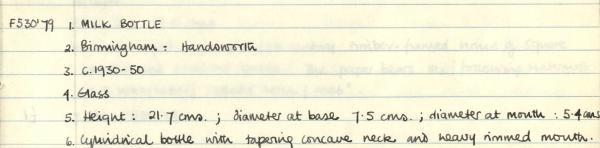 F530'79 1. MILK BOTTLE
2. Birmingham : Handsworth
3. C.1930-50
4. Glass
5. Height : 21.7 cms. ; diameter at base 7.5 cms. ; diameter at mouth : 5.4 cms
6. Cylindrical bottle with tapering concave neck and heavy rimmed mouth.